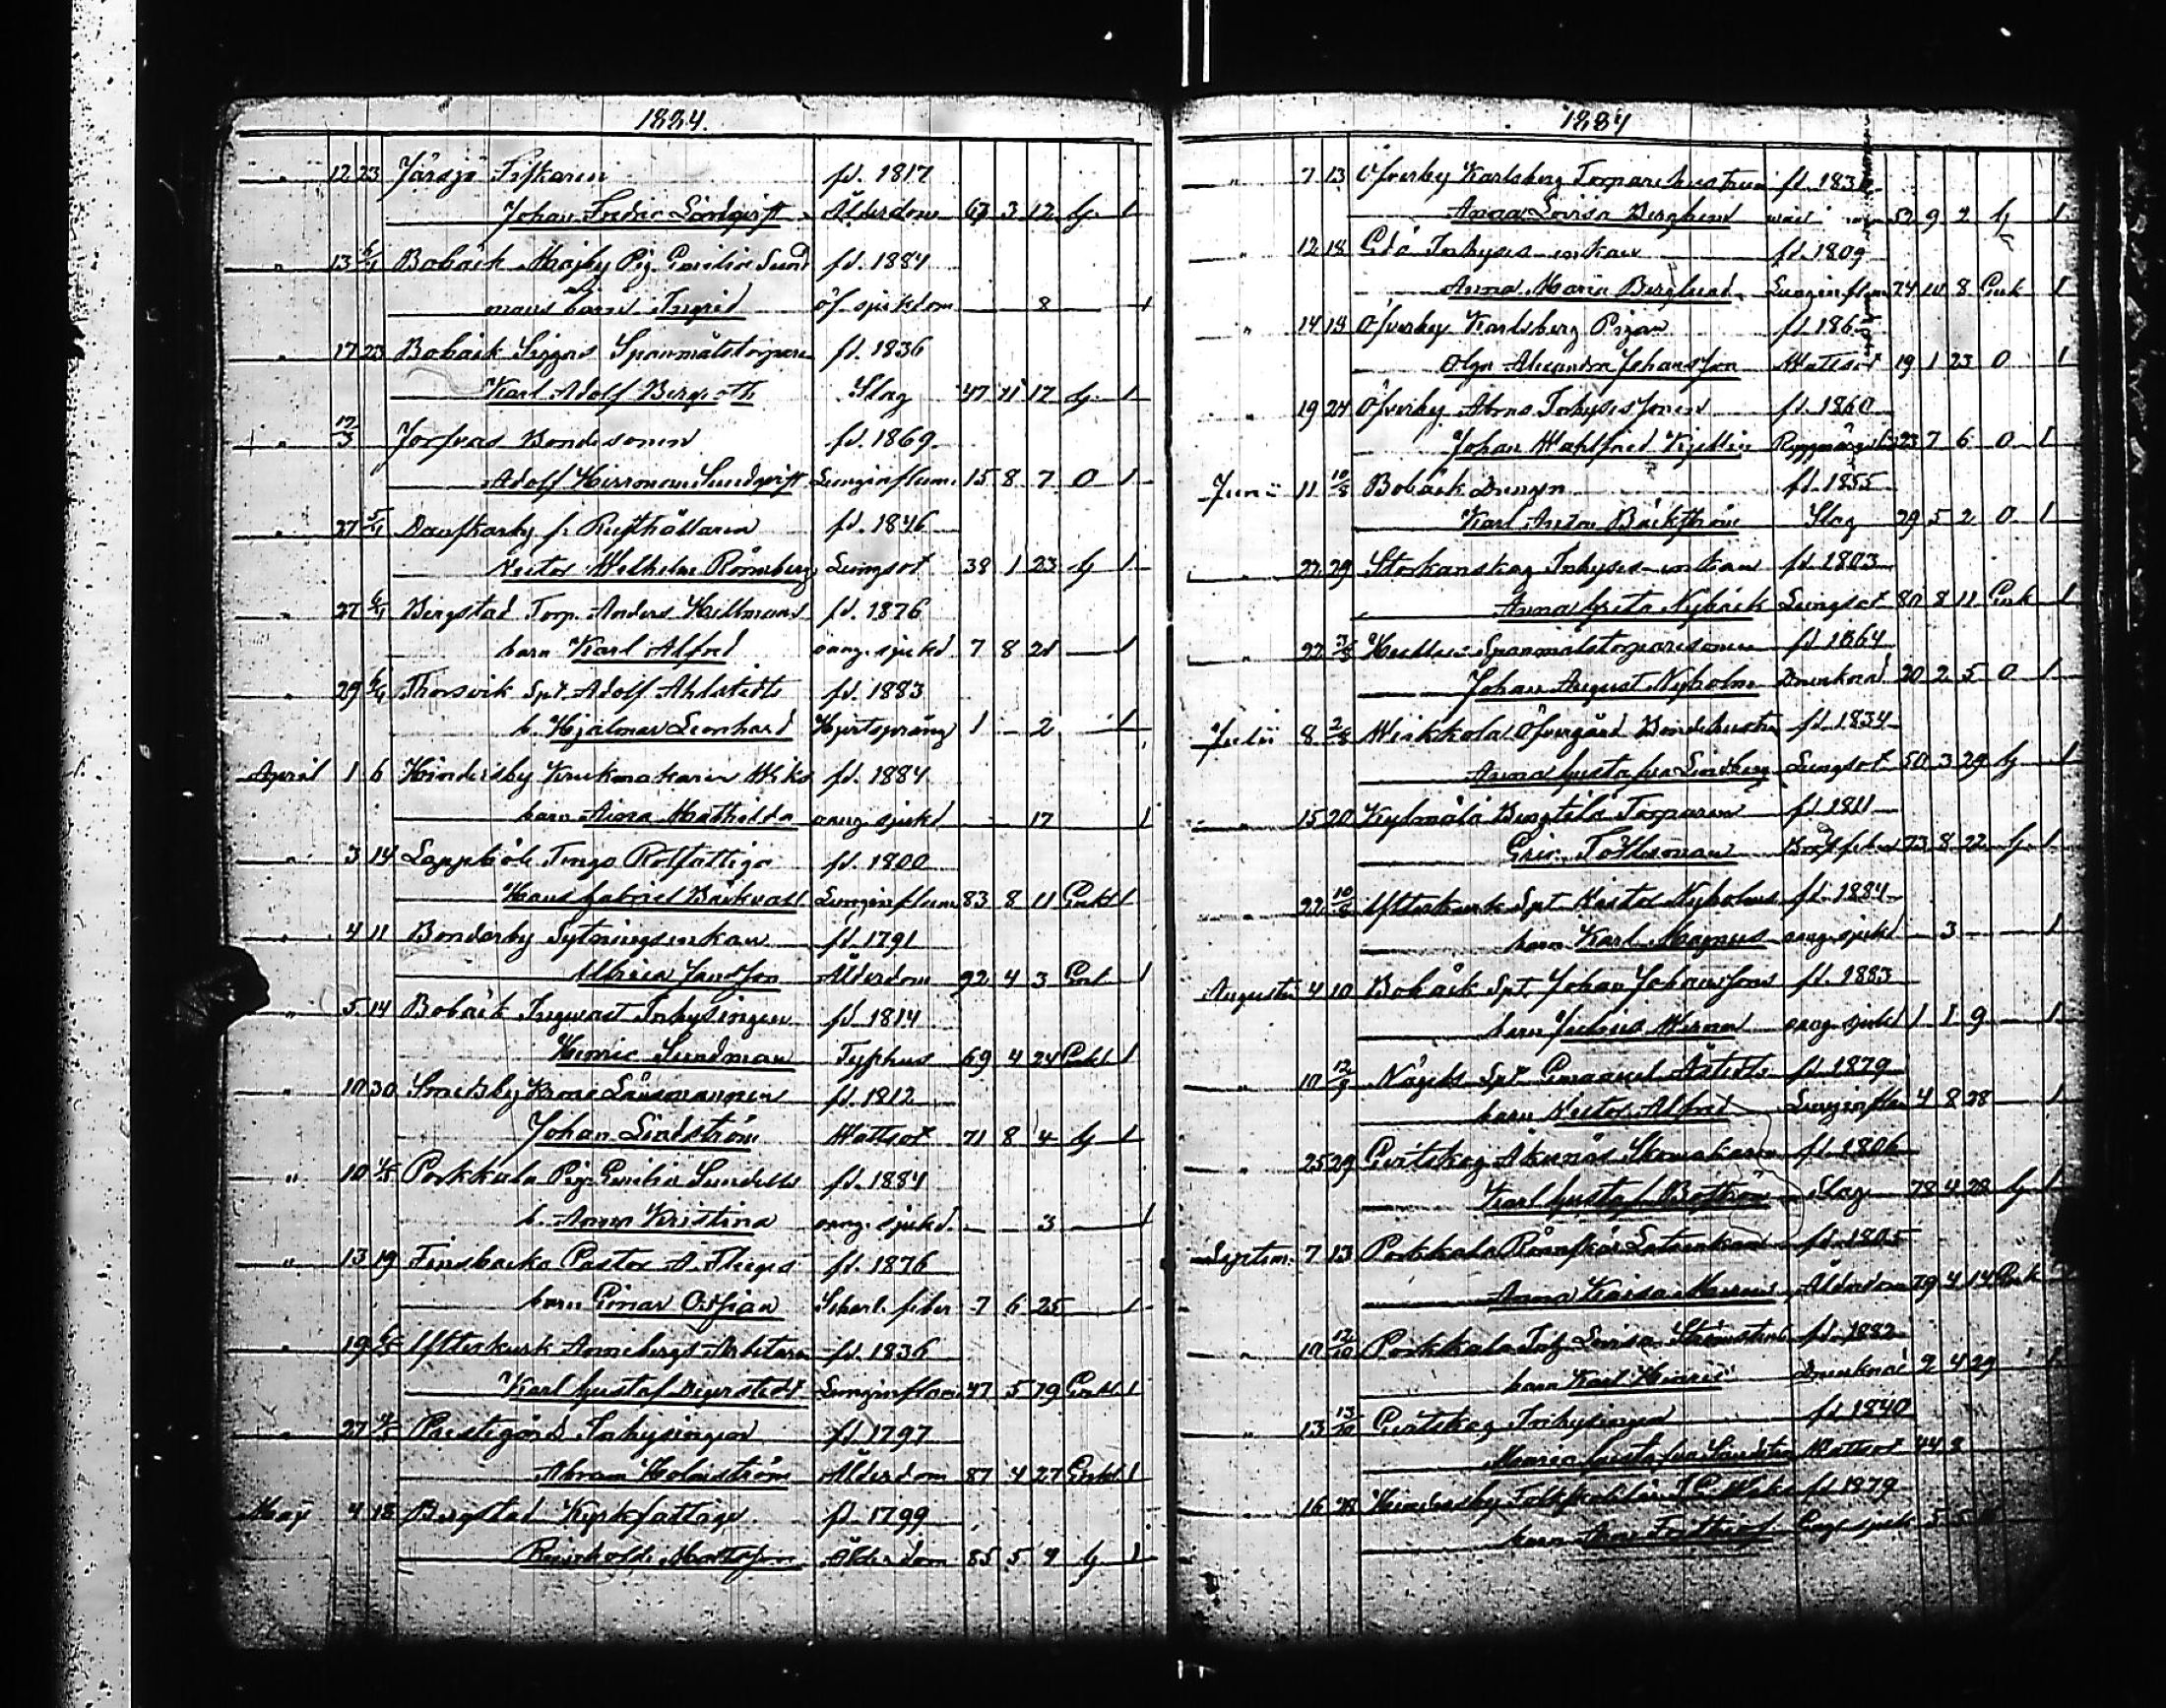 1884.
" 12 23 Järsjö Fiskaren fd. 1817
Johan Fredric Lindqvist Ålderdom 67 3 12 G. 1
" 13 6/4 Bobäck Majby Pig. Emilia Sund fd. 1884
mans barn Ingrid öf. sjukdom 8 1
" 17 23 Bobäck Siggas Spanmålstorparen fd. 1836
Karl Adolf Bergroth Slag 47 11 17 G. 1
" Jorfvas Bondesonen fd. 1869
Adolf Lundqvist Lunginflam. 15 8 7 O 1
" 27 5/4 Danskarby f. Rusthållaren fd. 1846
Victor Wilhelm Rönnberg Lungsot 38 1 23 G 1
" 27 6/4 Bergstad Torp. Anders Hellmans fd. 1876
barn Karl Alfred oang. sjukd. 7 8 21 1
" 29 6/4 Thorsvik Spt. Adolf Ahlstedts fd. 1883
b. Hjalmar Leonhard Hjertsprång 1 2 1
April 1 6 Hindersby Krukmakaren Wiks fd. 1884
barn Aina Mathilda oang. sjukd 17 1
" 3 14 Lappböle Junga Rotfattiga fd. 1800
Hans Gabriel Bäckvall Lunginflam 83 8 11 Enkl 1
" 4 11 Bonderby Sytningsenkan fd. 1791
Ulrica Jansson Ålderdom 92 4 3 Enk. 1
" 5 14 Bobäck Ingvast Inhysingen fd. 1814
Henric Sundman Typhus 69 4 24 Enkl 1
" 10 30 Smedsby Krono Länsmannen fd. 1812
Johan Lindström Wattsot 71 8 4 G 1
" 10 Porkkala Pig. Emilia Sundells fd. 1884
b. Anna Kristina oang. sjukd. 3 1
" 13 19 Finsbacka Pastor A. fd. 1876
barn Einar Ossian Scharl. feber 7 6 25 1
" 19 Österkurk Annebergs Arbetaren fd. 1836
Karl Gustaf Segerstedt Lunginflam 47 5 19 Enkl 1
" 27 Prestegård Inhysingen fd. 1797
Abram Holmström Ålderdom 87 4 27 Enkl 1
May 4 18 Bergstad Kyrkfattige fd. 1799
Reinhold Mattsson Ålderdom 85 5 9 G 1
1884
" 7 13 Öfverby Karlsberg Torparehustrun fd. 1831
Anna Lovisa Berglund 52 9 2 G 1
" 12 18 Edö Inhyses-enkan fd. 1809
Anna Maria Berglund Lunginflam 74 10 8 Enk 1
" 14 18 Öfverby Karlsberg Pigan fd. 186
Olga Alexandra Johansson Wattsot 19 1 23 O 1
" 19 24 Öfverby Abras Inhysessonen fd. 1860
Johan Wahlfrid Kjellin 23 7 6 O 1
Junii 11 Bobäck Drengen fd. 1855
Karl Anton Bäckström Slag 29 5 2 O 1
" 22 29 Storkanskog Inhyses-enkan fd. 1803
Anna Greta Nybäck Lungsot 80 8 11 Enk 1
" 22 Spanmålstorparesonen fd. 1864
Johan August Nyholm Drunknad 20 2 5 O 1
Julii 8 Wirkkola Öfvergård Bondehustru fd. 1834
Anna Gustafva Lindberg Lungsot 50 3 29 G 1
" 15 20 Kylmälä Bengtilä Torparen fd. 1811
Eric Tollsman 73 8 22 G. 1
" 22 Österkurk Spt. Victor Nyholms fd. 1884
barn Karl Magnus oang. sjukd 3 1
Augusti 4 10 Bobäck Spt. Johan Johanssons fd. 1883
barn Julius Werner oang. sjukd 1 1 9 1
" 10 12/9 Nägels Spt. Emanuel Åstedts fd. 1879
barn Victor Alfred Lunginflam 4 8 28 1
" 25 29 Evitskog Åkunäs Skomakaren fd. 1806
Karl Gustaf Boström Slag 78 4 28 G 1
Septem. 7 13 Porkkala Rönnskär Lotsenkan fd. 1805
Anna Kaisa Ålderdom 79 4 14 Enk
" 10 12/10 Porkkala Inh. Lovisa fd. 1882
barn Karl Henric Drunknat 2 4 29 1
" 13 13/10 Evitskog Inhysingen fd. 1840
Maria Gustafva Wattsot 44 8
" 16 28 Hindersby fd. 1879
barn oang. sjukd 5 5